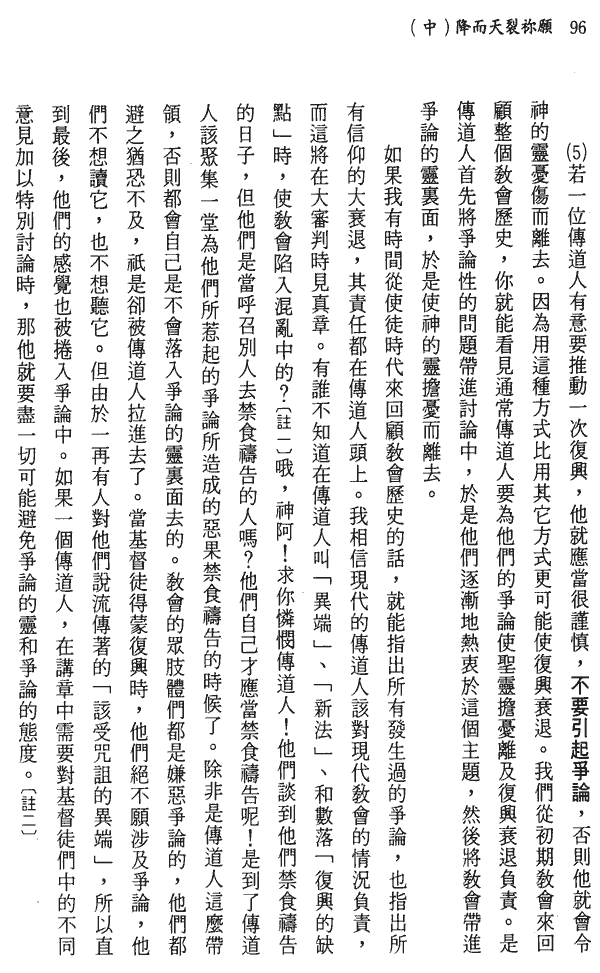 96　願祢裂天而降（中）
⑸若一位傳道人有意要推動一次復興，他就應當很謹慎，不要引起爭論，否則他就會令
神的靈憂傷而離去。因為用這種方式比用其它方式更可能使復興衰退。我們從初期教會來回
顧整個敎會歷史，你就能看見通常傳道人要為他們的爭論使聖靈擔憂離及復興衰退負責。是
傳道人首先將爭論性的問題帶進討論中，於是他們逐漸地熱衷於這個主題，然後將敎會帶進
爭論的靈裏面，於是使神的靈擔憂而離去。
如果我有時間從使徒時代來回顧敎會歷史的話，就能指出所有發生過的爭論，也指出所
有信仰的大衰退，其責任都在傳道人頭上。我相信現代的傳道人該對現代敎會的情況負責，
而這將在大審判時見真章。有誰不知道在傳道人叫「異端」、「新法」、和數落「復興的缺
點」時，使敎會陷入混亂中的？〔註一〕哦，神阿！求你憐憫傳道人！他們談到他們禁食禱告
的日子，但他們是當呼召別人去禁食禱告的人嗎？他們自己才應當禁食禱告呢！是到了傳道
人該聚集一堂為他們所惹起的爭論所造成的惡果禁食禱告的時候了。除非是傳道人這麼帶
領，否則都會自己是不會落入爭論的靈裏面去的。敎會的眾肢體們都是嫌惡爭論的，他們都
避之猶恐不及，祇是卻被傳道人拉進去了。當基督徒得蒙復興時，他們絕不願涉及爭論，他
們不想讀它，也不想聽它。但由於一再有人對他們說流傳著的「該受咒詛的異端」，所以直
到最後，他們的感覺也被捲入爭論中。如果一個傳道人，在講章中需要對基督徒們中的不同
意見加以特別討論時，那他就要盡一切可能避免爭論的靈和爭論的態度。〔註二〕